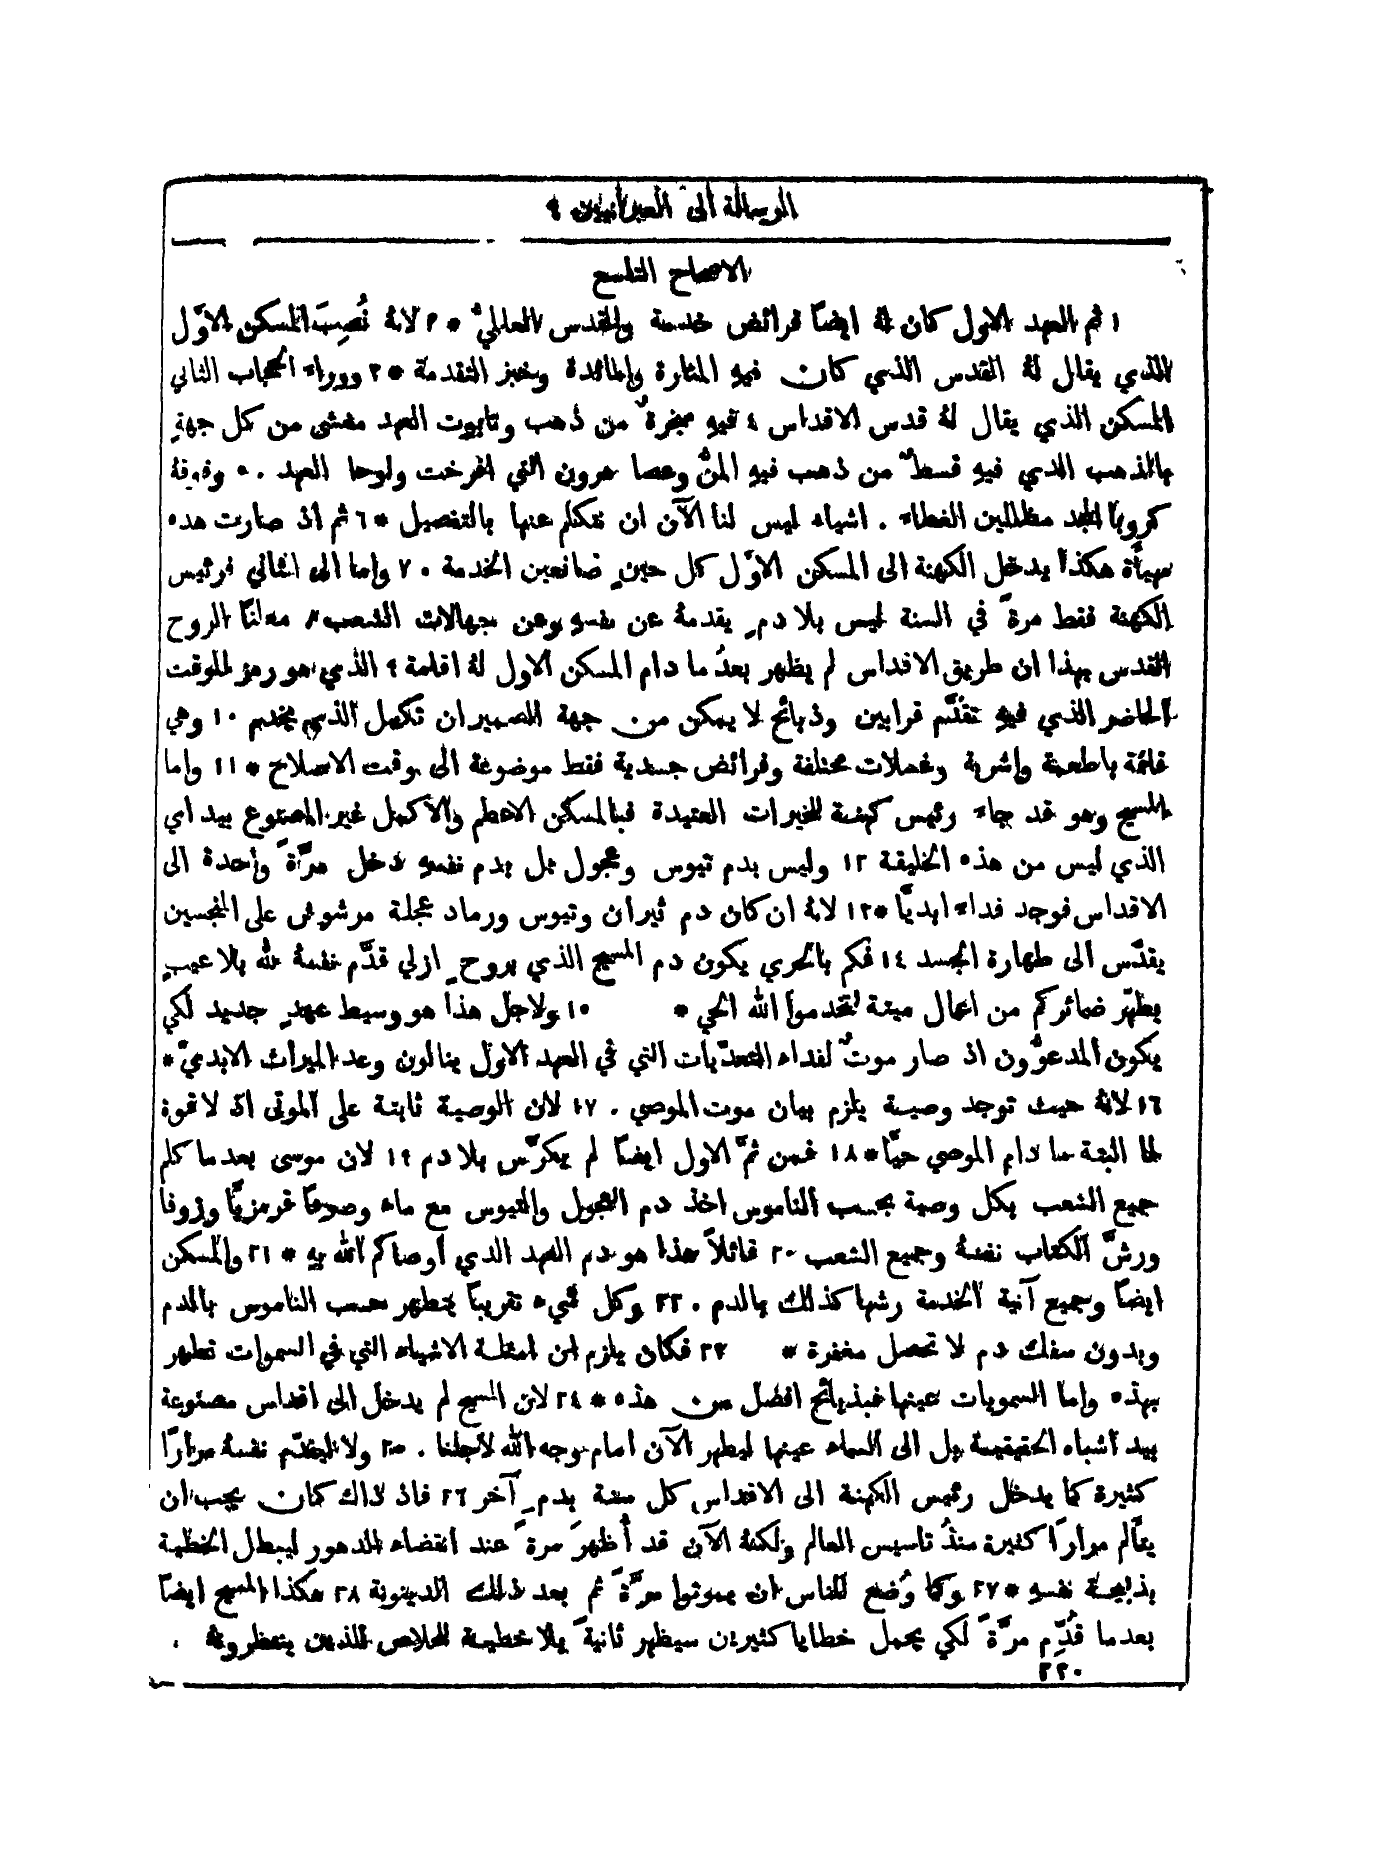 الرسالة الى العبرانيين ٩
الاصحاح التاسع
١ ثم العهد الاول كان لهُ ايضًا فرائض خدمة والقدس العالميُّ * ٢ لانهُ نُصِبَ المسكن الاوَّل
الذي يقال لهُ القدس الذي كان فيهِ المنارة والمائدة وخبز التقدمة * ٣ ووراء الحجاب الثاني
المسكن الذي يقال لهُ قدس الاقداس ٤ فيهِ مبخرةٌ من ذهب وتابوت العهد مغشى من كل جهةٍ
بالذهب الذي فيهِ قسطٌ من ذهب فيهِ المنُّ وعصا هرون التي افرخت ولوحا العهد . ٥ وفوقهُ
كروبا المجد مظللين الغطاء . اشياء ليس لنا الآن ان نتكلم عنها بالتفصيل * ٦ ثم اذ صارت هذه
مهيأة هكذا يدخل الكهنة الى المسكن الاوَّل كل حينٍ صانعين الخدمة . ٧ واما الى الثاني فرئيس
الكهنة فقط مرةً في السنة ليس بلا دمٍ يقدمهُ عن نفسهِ وعن جهالات الشعب ٨ معلنًا الروح
القدس بهذا ان طريق الاقداس لم يظهر بعدُ ما دام المسكن الاول لهُ اقامة ٩ الذي هو رمز للوقت
الحاضر الذي فيهِ تقدَّم قرابين وذبائح لا يمكن من جهة الضمير ان تكمل الذي يخدم ١٠ وهي
قائمة باطعمة واشربة وغسلات مختلفة وفرائض جسدية فقط موضوعة الى وقت الاصلاح * ١١ واما
المسيح وهو قد جاء رئيس كهنة للخيرات العتيدة فبالمسكن الاعظم والاكمل غير المصنوع بيد اي
الذي ليس من هذه الخليقة ١٢ وليس بدم تيوس وعجول بل بدم نفسهِ دخل مرَّةً واحدة الى
الاقداس فوجد فداء ابديًّا * ١٣ لانهُ ان كان دم ثيران وتيوس ورماد عجلة مرشوش على المنجسين
يقدّس الى طهارة الجسد ١٤ فكم بالحري يكون دم المسيح الذي بروحٍ ازلي قدَّم نفسهُ لله بلا عيبٍ
يطهّر ضمائركم من اعمال ميتة لتخدموا الله الحي * ١٥ ولاجل هذا هو وسيط عهدٍ جديد لكي
يكون المدعوُّون اذ صار موتٌ لفداء التعدّيات التي في العهد الاول ينالون وعد الميراث الابديّ *
١٦ لانهُ حيث توجد وصية يلزم بيان موت الموصي . ١٧ لان الوصية ثابتة على الموتى اذ لا قوة
لها البتة ما دام الموصي حيًّا * ١٨ فمن ثمَّ الاول ايضًا لم يكرَّس بلا دم ١٩ لان موسى بعد ما كلم
جميع الشعب بكل وصية بحسب الناموس اخذ دم العجول والتيوس مع ماء وصوفًا قرمزيًّا وزوفا
ورشَّ الكتاب نفسهُ وجميع الشعب ٢٠ قائلاً هذا هو دم العهد الذي أوصاكم الله بهِ * ٢١ والمسكن
ايضًا وجميع آنية الخدمة رشها كذلك بالدم . ٢٢ وكل شيء تقريبًا يتطهر حسب الناموس بالدم
وبدون سفك دم لا تحصل مغفرة * ٢٣ فكان يلزم ان امثلة الاشياء التي في السموات تطهر
بهذه واما السمويات عينها فبذبائح افضل من هذه * ٢٤ لان المسيح لم يدخل الى اقداس مصنوعة
بيد اشباه الحقيقية بل الى السماء عينها ليظهر الآن امام وجه الله لأجلنا . ٢٥ ولا ليقدّم نفسهُ مرارًا
كثيرة كما يدخل رئيس الكهنة الى الاقداس كل سنة بدمٍ آخر ٢٦ فاذ ذاك كان يجب ان
يتألم مرارًا كثيرة منذُ تاسيس العالم ولكنهُ الآن قد أُظهرَ مرةً عند انقضاء الدهور ليبطل الخطية
بذبيحة نفسهِ * ٢٧ وكما وُضع للناس ان يموتوا مرَّةً ثم بعد ذلك الدينونة ٢٨ هكذا المسيح ايضًا
بعد ما قُدِّم مرَّةً لكي يحمل خطايا كثيرين سيظهر ثانيةً بلا خطية للخلاص للذين ينتظرونهُ .
٣٢٠